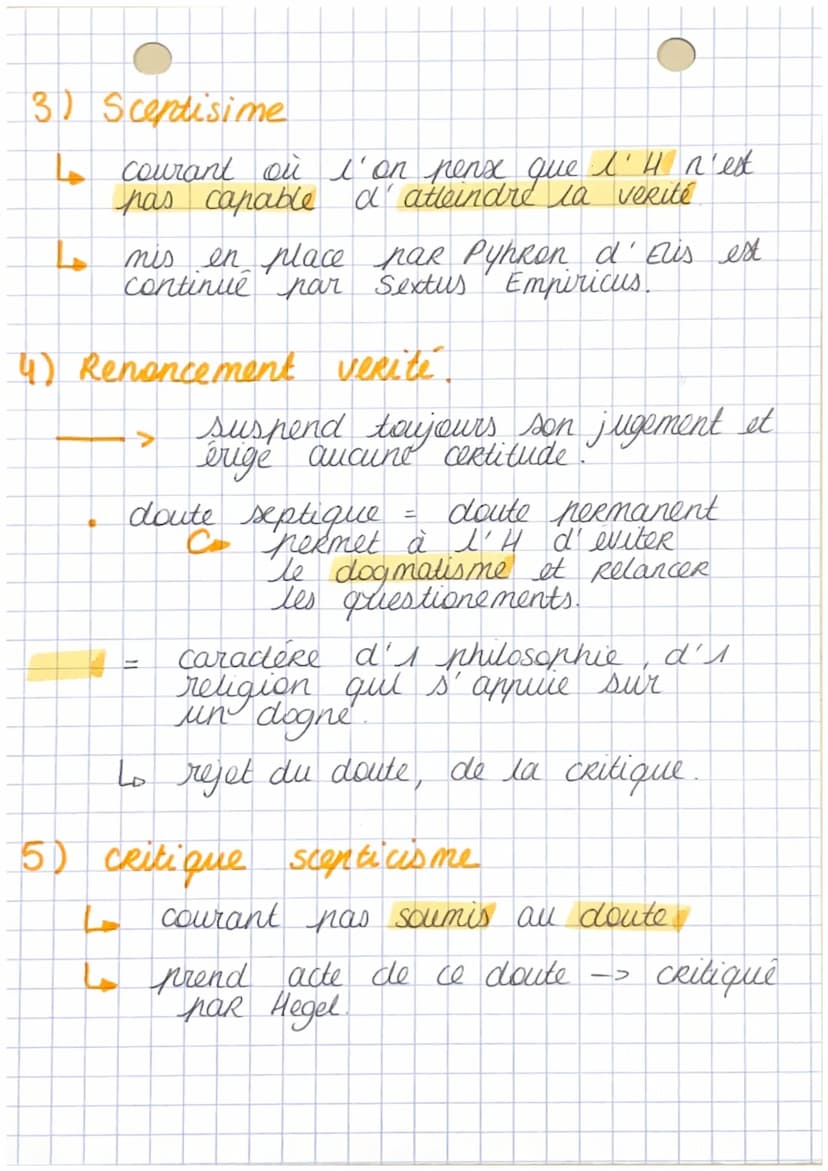 3) Sceptisime
↳ courant où l'on pense que l'H n'est
pas capable d'atteindre la verité
↳ mis en place par Pyhron d'Elis est
continué par Sextus Empiricus.
4) Renoncement verité.
—> suspend toujours son jugement et
érige aucune certitude.
• doute septique = doute permanent
↳ permet à l'H d'eviter
le dogmatisme et relancer
les questionements.
= caractére d'1 philosophie, d'1
religion qui s'appuie sur
un dogne.
↳ rejet du doute, de la critique.
5) critique scepticisme
↳ courant pas soumis au doute
↳ prend acte de ce doute -> critiqué
par Hegel.